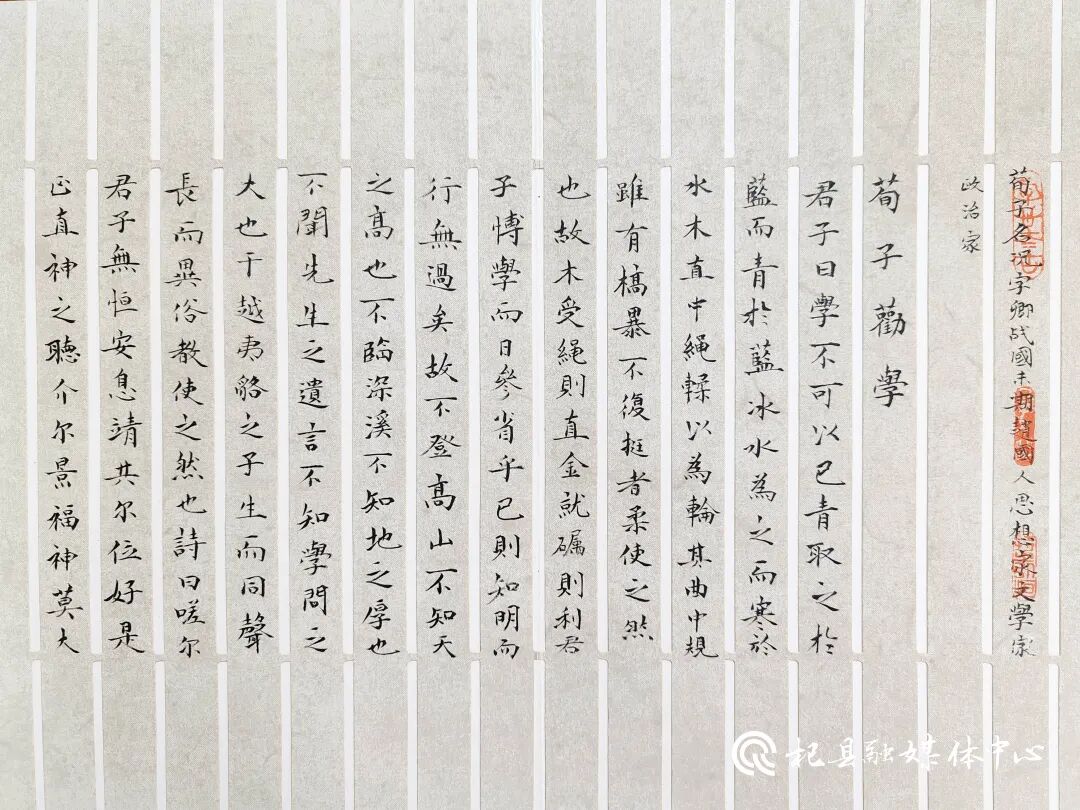 荀子名况字卿战國末期趙國人思想家文學家
政治家
荀子勸學
君子曰學不可以已青取之於
藍而青於藍冰水為之而寒於
水木直中繩輮以為輪其曲中規
雖有槁暴不復挺者柔使之然
也故木受繩則直金就礪則利君
子博學而日參省乎已則知明而
行無過矣故不登高山不知天
之高也不臨深溪不知地之厚也
不聞先生之遺言不知學問之
大也干越夷貉之子生而同聲
長而異俗教使之然也詩曰嗟尔
君子無恒安息靖共尔位好是
正直神之聽介尔景福神莫大
杞县融媒体中心